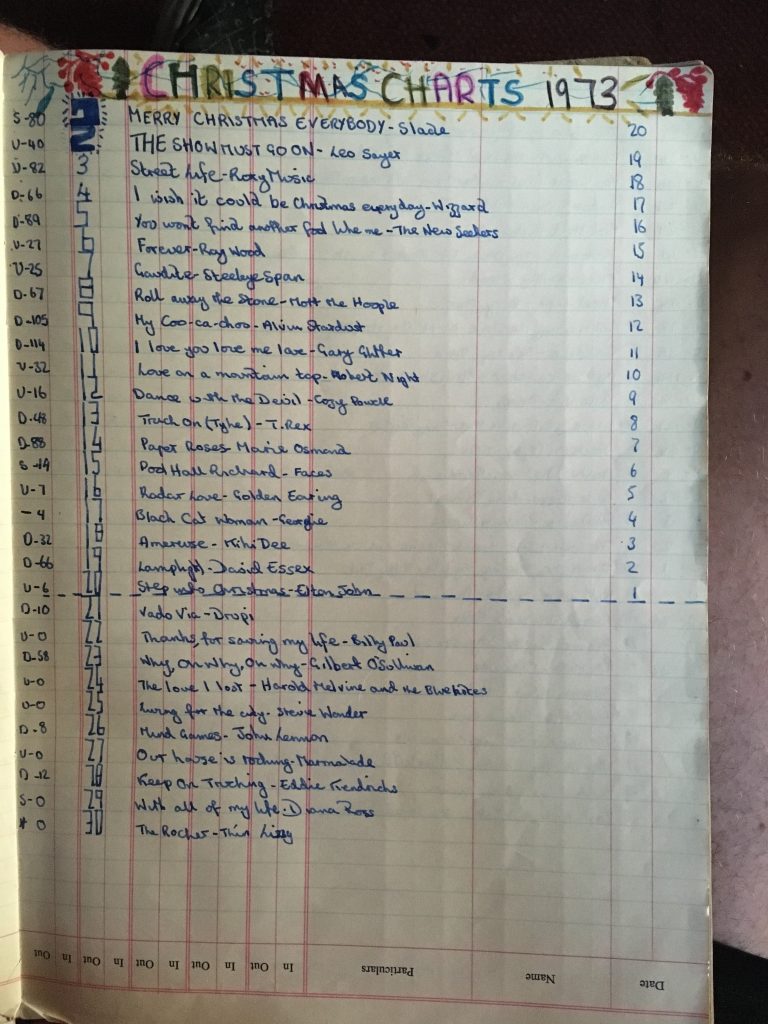 CHRISTMAS CHARTS 1973
S-80 1 MERRY CHRISTMAS EVERYBODY - Slade 20
U-40 2 THE SHOW MUST GO ON - Leo Sayer 19
U-82 3 Street Life - Roxy Music 18
D-66 4 I wish it could be Christmas everyday - Wizzard 17
D-89 5 You won't find another fool like me - The New Seekers 16
U-27 6 Forever - Roy Wood 15
U-25 7 Gaudite - Steeleye Span 14
D-67 8 Roll away the Stone - Mott the Hoople 13
D-105 9 My Coo-ca-choo - Alvin Stardust 12
D-114 10 I love you love me love - Gary Glitter 11
U-32 11 Love on a mountain top - Robert Night 10
U-16 12 Dance with the Devil - Cozy Powell 9
D-48 13 Truck On (Tyke) - T.Rex 8
D-88 14 Paper Roses - Marie Osmond 7
S-14 15 Pool Hall Richard - Faces 6
U-7 16 Radar Love - Golden Earing 5
- 4 17 Black Cat Woman - Geordie 4
D-32 18 Amereuse - Kiki Dee 3
D-66 19 Lamplight - David Essex 2
U-6 20 Step into Christmas - Elton John 1
D-10 21 Vado Via - Drupi
U-0 22 Thanks for saving my life - Billy Paul
D-58 23 Why, Oh Why, Oh why - Gilbert O'Sullivan
U-0 24 The love I lost - Harold Melvine and the Bluenotes
U-0 25 Living for the city - Stevie Wonder
D-8 26 Mind Games - John Lennon
U-0 27 Our house is rocking - Marmalade
D-12 28 Keep On Trucking - Eddie Kendricks
S-0 29 With all of my life - Diana Ross
* 0 30 The Rocker - Thin Lizzy
Out In Out In Out In Out In Out In Particulars Name Date